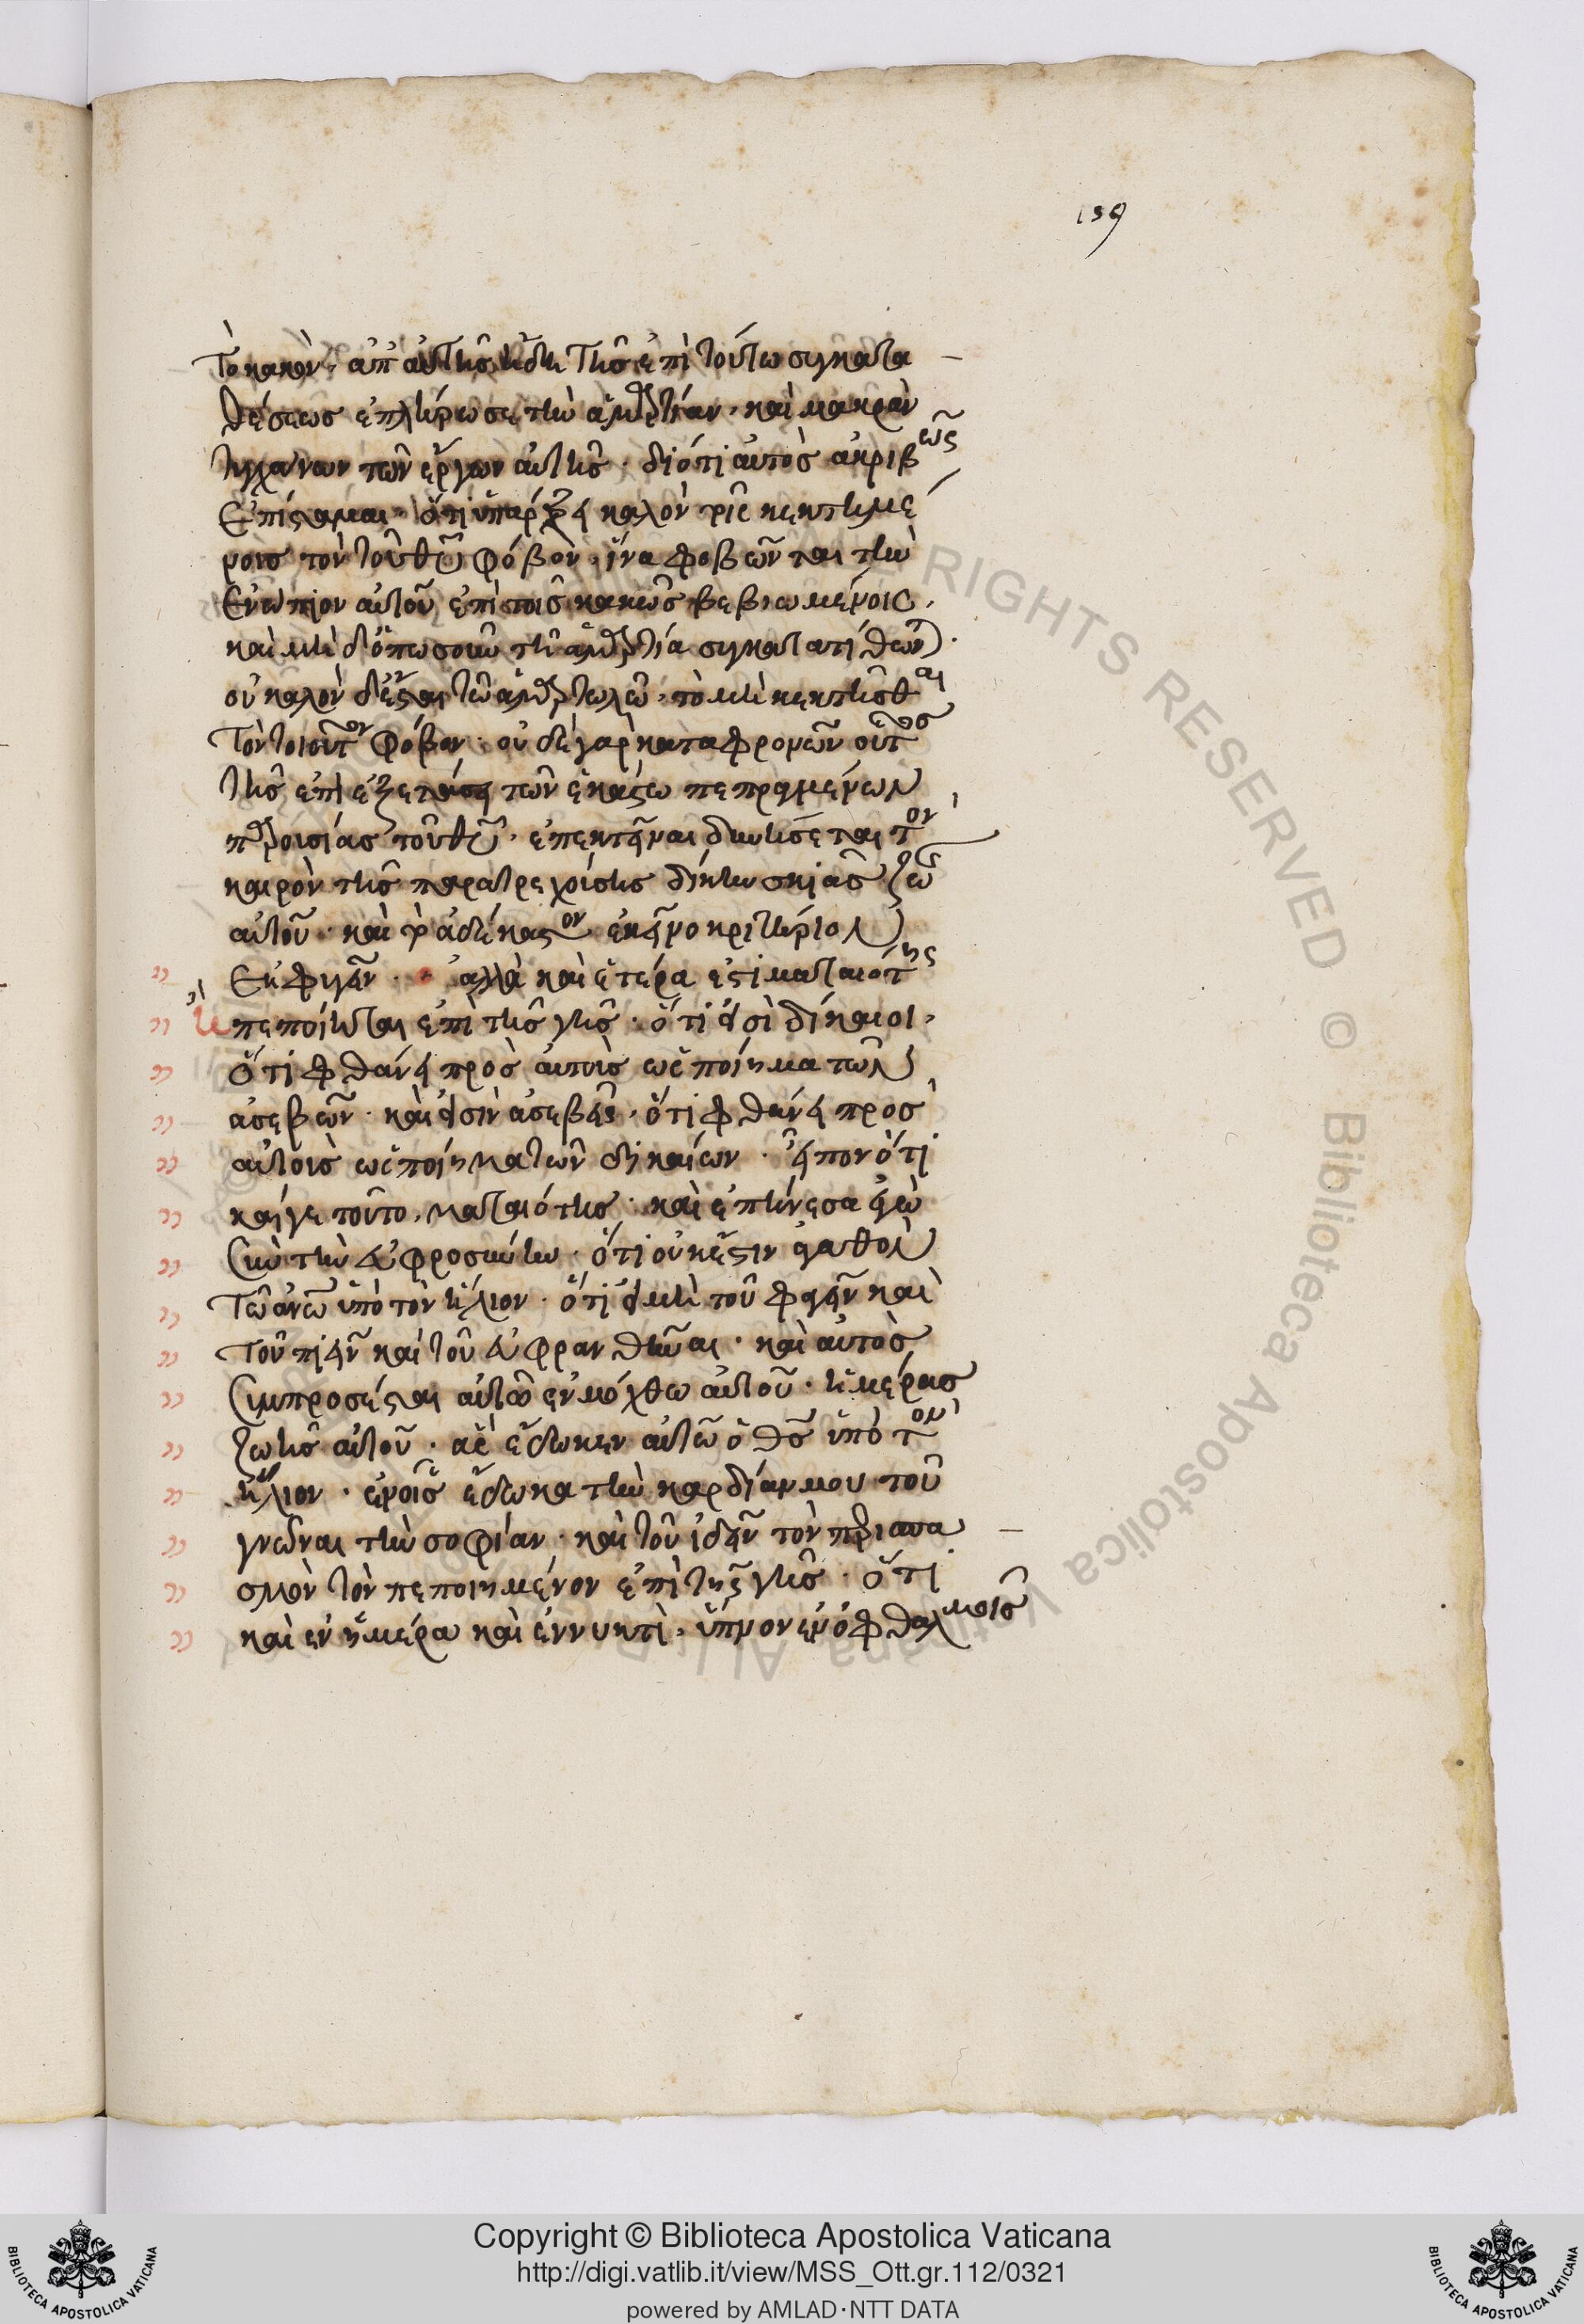 159
τὸ κακὸν, ἀπ' αὐτῆς ἤδη τῆς ἐπὶ τούτω συγκατα
θέσεως ἐπλήρωσε τὴν ἁμαρτίαν, καὶ μακρὰν
τυγχάνων τῶν ἔργων αὐτῆς. διότι αὐτὸς ἀκριβῶς
ἐπίσταμαι ὅτι ὑπάρξει καλὸν τοῖς κεκτημέ
νοις τὸν τοῦ θυ φόβον, ἵνα φοβῶνται τὴν
ἐνώπιον αὐτοῦ ἐπὶ τοῖς κακῶς βεβιωμένοις,
καὶ μὴ δ' ὁπωσοῦν τῆ ἁμαρτία συγκατατίθων).
οὐ καλὸν δὲ ἔσται τῶ ἁμαρτωλῶ, τὸ μὴ κεκτῆσθαι
τὸν τοιοῦτον φόβον. οὐδὲ γὰρ καταφρονῶν οὗτος
τῆς ἐπ' ἐξετάσει τῶν ἑκάστω πεπραγμένων
παρουσίας τοῦ θυ, ἐπεκτεῖναι δυνήσεται τὸν
καιρὸν τῆς παρατρεχούσης δίκην σκιᾶς ζωῆς
αὐτοῦ. καὶ τὸ ἀδέκαστον ἐκεῖνο κριτήριον
ἐκφυγεῖν. ἀλλὰ καὶ ἑτέρα ἐστὶ ματαιότης
ἣ πεποίηται ἐπὶ τῆς γῆς. ὅτι εἰσὶ δίκαιοι,
ὅτι φθάνει πρὸς αὐτοὺς ὡς ποίημα τῶν
ἀσεβῶν. καὶ εἰσὶν ἀσεβεῖς, ὅτι φθάνει προς
αὐτοὺς ὡς ποίημα τῶν δικαίων. εἶπον ὅτι
καίγε τοῦτο, ματαιότης. καὶ ἐπήνεσα ἐγὼ
σὺν τὴν εὐφροσύνην. ὅτι οὐκ ἔστιν ἀγαθὸν
τῶ ἀνω ὑπὸ τὸν ἥλιον. ὅτι εἰ μὴ τοῦ φαγεῖν καὶ
τοῦ πιεῖν καὶ τοῦ εὐφρανθῆναι. καὶ αὐτὸς
συμπροσέσται αὐτῶ ἐν μόχθω αὐτοῦ. ἡμέρας
ζωῆς αὐτοῦ. ἃς ἔδωκεν αὐτῶ ὁ θς ὑπὸ τὸν
ἥλιον. ἐν οἷς ἔδωκα τὴν καρδίαν μου τοῦ
γνῶναι τὴν σοφίαν. καὶ τοῦ ἰδεῖν τὸν περισπα
σμὸν τὸν πεποιημένον ἐπὶ τῆς γῆς. ὅτι
καὶ ἐν ἡμέρα καὶ ἐν νυκτὶ, ὕπνον ἐν ὀφθαλμοῖς
ALL RIGHTS RESERVED © Biblioteca Apostolica Vaticana
Copyright © Biblioteca Apostolica Vaticana
http://digi.vatlib.it/view/MSS_Ott.gr.112/0321
powered by AMLAD·NTT DATA
BIBLIOTECA APOSTOLICA VATICANA
BIBLIOTECA APOSTOLICA VATICANA